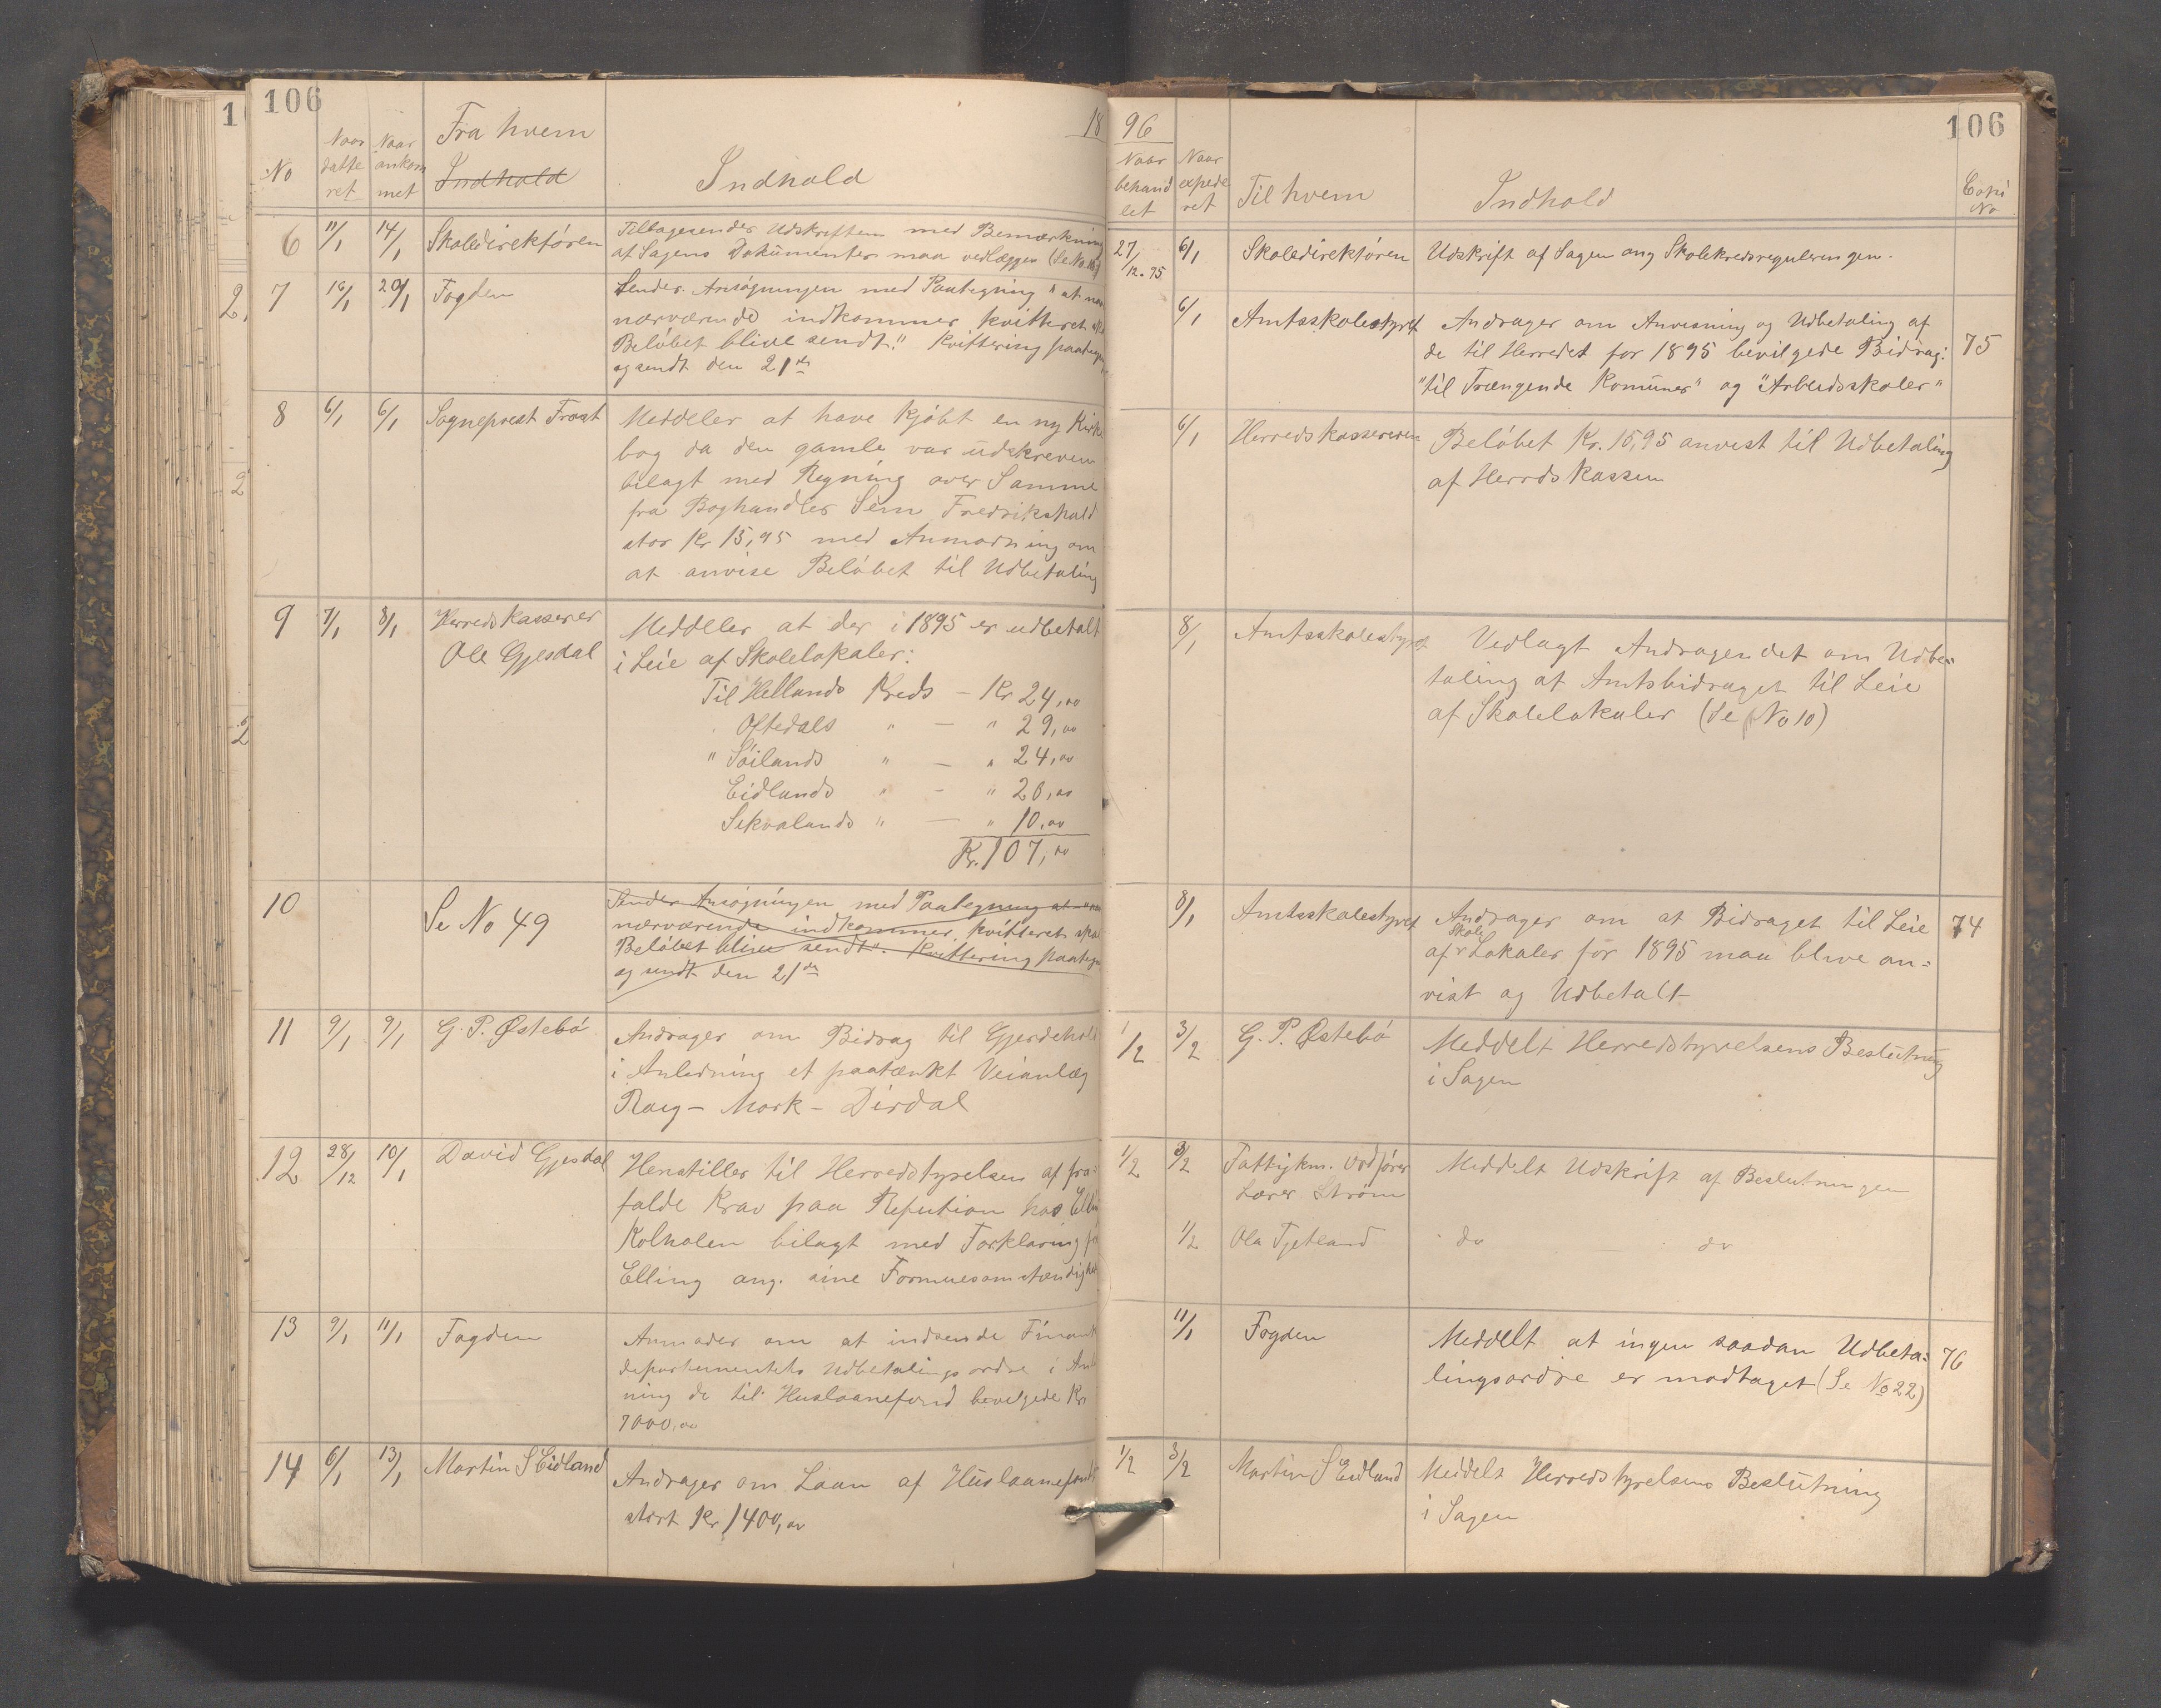 106
No
Naar datteret
Naar ankommet
Fra hvem
Indhold
Indhold
18
6
11/1
14/1
Skoledirektøren
Tilbagesender Udskriften med Bemærkning
af Sagens Dokumenter maa vedlægges (Se No
7
16/1
20/1
Fogden
Sender Ansøgningen med Paategning "at
nærværende indkommer kvitteret
Beløbet blive sendt." Kvittering
og sendt den 21de
8
6/1
6/1
Sogneprest Frost
Meddeler at have kjøbt en ny Kirke
bog da den gamle var udskreven
bilagt med Regning over Samme
fra Boghandler Sem Fredrikshald
stor Kr 15,95 med Anmodning om
at anvise Beløbet til Udbetaling
9
7/1
8/1
Herredskasserer
Ole Gjesdal
Meddeler at der i 1895 er udbetalt
i Leie af Skolelokaler:
Til Hellands Kreds – Kr 24,00
Oftedals " – " 29,00
" Søilands " – " 24,00
Eidlands " – " 20,00
Sekvalands " – " 10,00
Kr. 107,00
10
Se No 49
Sender Ansøgningen med Paategning at
nærværende indkommer kvitteret
Beløbet blive sendt". Kvittering
og sendt den 21de
11
9/1
9/1
G. P. Østebø
Andrager om Bidrag til Gjerdehold
i Anledning et paatænkt Veianlæg
Røeg – Mork – Dirdal
12
28/12
10/1
David Gjesdal
Henstiller til Herredstyrelsen at fra=
falde Krav paa Refution hos
Kolholen bilagt med Forklaring
Elling ang. sine Formuesomstændighe
13
9/1
11/1
Fogden
Anmoder om at indsende Finants
departementets Udbetalingsordre i
ning de til Huslaanefond bevilgede Kr
7000,00
14
6/1
13/1
Martin S Eidland
Andrager om Laan af Huslaanefond
stort Kr 1400,00
96
106
Naar behandlet
Naar expederet
Til hvem
Indhold
Copi No
27/12.95
6/1
Skoledirektøren
Udskrift af Sagen ang Skolekredsreguleringen.
6/1
Amtsskolestyret
Andrager om Anvisning og Udbetaling af
de til Herredet for 1895 bevilgede Bidrag:
"til Trængende Komuner" og "Arbeidsskoler"
75
6/1
Herredskassereren
Beløbet Kr. 15,95 anvist til Udbetaling
af Herredskassen
8/1
Amtsskolestyret
Vedlagt Andragendet om Udbe=
taling af Amtsbidraget til Leie
af Skolelokaler (Se No 10)
8/1
Amtsskolestyret
Andrager om at Bidraget til Leie
af Skole Lokaler for 1895 maa blive an=
vist og Udbetalt
74
1/2
3/2
G. P. Østebø
Meddelt Herredstyrelsens Beslutning
i Sagen
1/2
3/2
Fattigkm. Ordfører
Lærer Strøm
Meddelt Udskrift af Beslutningen
1/2
Ola Tjetland
do do
11/1
Fogden
Meddelt at ingen saadan Udbeta=
lingsordre er modtaget (Se No 22)
76
1/2
3/2
Martin S Eidland
Meddelt Herredstyrelsens Beslutning
i Sagen